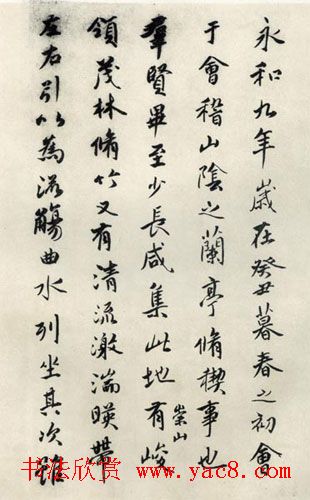 永和九年歲在癸丑暮春之初會
于會稽山陰之蘭亭脩稧事也
羣賢畢至少長咸集此地有崇山峻
領茂林脩竹又有清流激湍暎帶
左右引以為流觴曲水列坐其次雖
书法欣赏 www.yac8.com